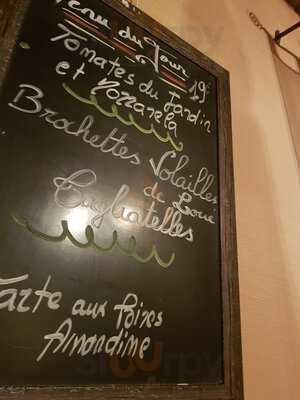 Menu du Jour 19€
Tomates du Jardin
et Mozzarela
Brochettes Volailles
de Loué
Tagliatelles
Tarte aux Poires
Amandine